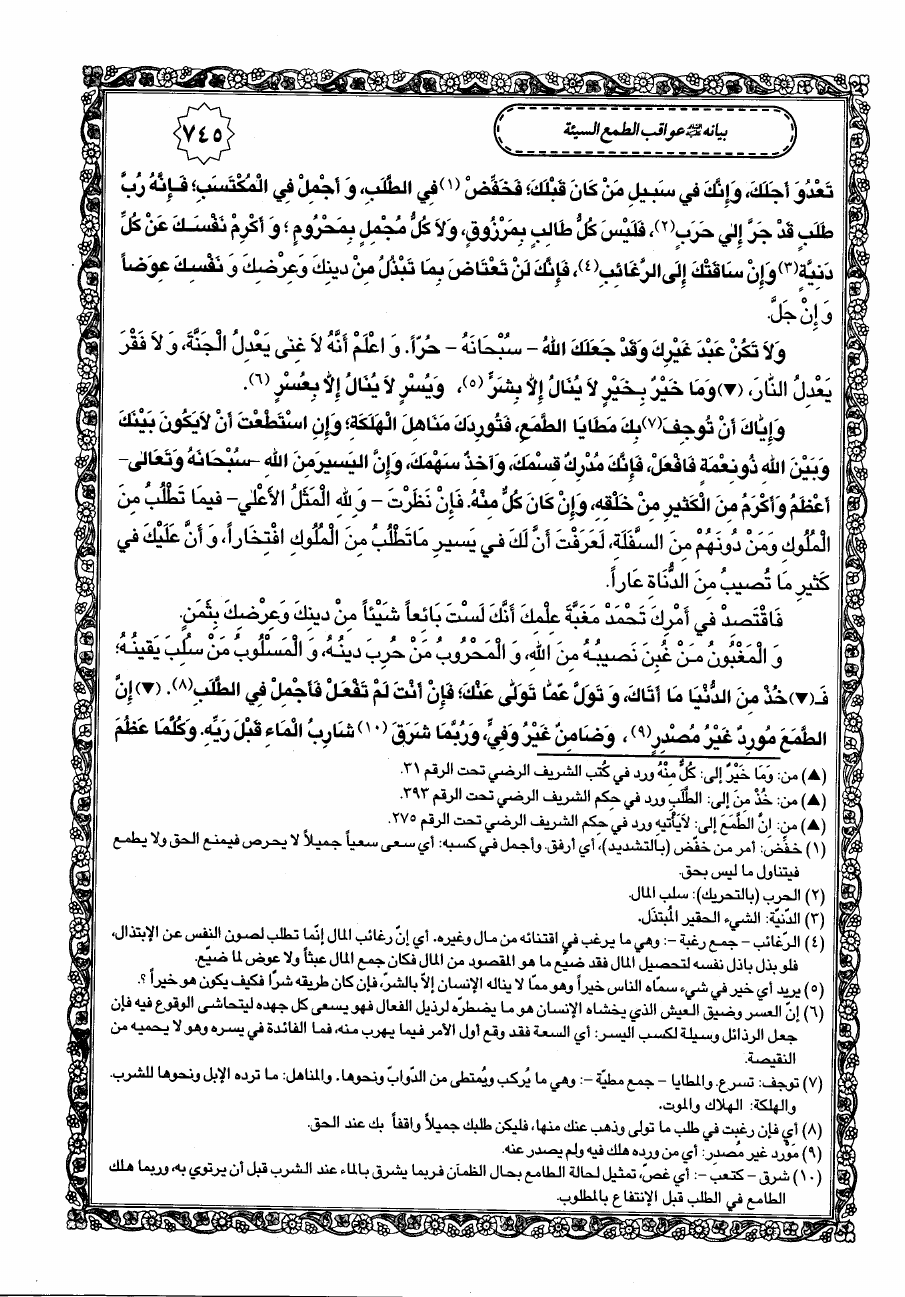 بيانه عواقب الطمع السيئة
٧٤٥
تَعْدُوَ أَجَلَكَ، وَإِنَّكَ في سَبيلِ مَنْ كَانَ قَبْلَكَ؛ فَخَفِّضْ (١) فِي الطَّلَبِ، وَ أَجْمِلْ فِي الْمُكْتَسَبِ؛ فَإِنَّهُ رُبَّ
طَلَبٍ قَدْ جَرَّ إِلي حَرَبٍ (٢)، فَلَيْسَ كُلُّ طَالِبٍ بِمَرْزُوقٍ، وَلاَ كُلُّ مُجْمِلٍ بِمَحْرُومٍ؛ وَ أَكْرِمْ نَفْسَكَ عَنْ كُلِّ
دَنِيَّةٍ (٣) وَإِنْ سَاقَتْكَ إِلَى الرَّغَائِبِ (٤)، فَإِنَّكَ لَنْ تَعْتَاضَ بِمَا تَبْذُلُ مِنْ دينِكَ وَعِرْضِكَ وَ نَفْسِكَ عِوَضاً
وَ إِنْ جَلَّ.
وَلاَ تَكُنْ عَبْدَ غَيْرِكَ وَقَدْ جَعَلَكَ اللهُ - سُبْحَانَهُ - حُرّاً. وَ اعْلَمْ أَنَّهُ لاَ غِنٰى يَعْدِلُ الْجَنَّةَ، وَ لاَ فَقْرَ
يَعْدِلُ النَّارَ، (▼) وَمَا خَيْرٌ بِخَيْرٍ لاَ يُنَالُ إِلاَّ بِشَرٍّ (٥)، وَيُسْرٍ لاَ يُنَالُ إِلاَّ بِعُسْرٍ (٦).
وَإِيَّاكَ أَنْ تُوجِفَ (٧) بِكَ مَطَايَا الطَّمَعِ، فَتُورِدَكَ مَنَاهِلَ الْهَلَكَةِ؛ وَإِنِ اسْتَطَعْتَ أَنْ لاَيَكُونَ بَيْنَكَ
وَبَيْنَ اللهِ ذُو نِعْمَةٍ فَافْعَلْ، فَإِنَّكَ مُدْرِكٌ قِسْمَكَ، وَآخِذٌ سَهْمَكَ، وَإِنَّ الْيَسيرَ مِنَ اللهِ - سُبْحَانَهُ وَتَعَالى-
أَعْظَمُ وَأَكْرَمُ مِنَ الْكَثيرِ مِنْ خَلْقِهِ، وَإِنْ كَانَ كُلٌّ مِنْهُ. فَإِنْ نَظَرْتَ - وَلِلّهِ الْمَثَلُ الأَعْلٰى- فيمَا تَطْلُبُ مِنَ
الْمُلُوكِ وَمَنْ دُونَهُمْ مِنَ السَّفَلَةِ، لَعَرَفْتَ أَنَّ لَكَ في يَسيرِ مَاتَطْلُبُ مِنَ الْمُلوكِ افْتِخَاراً، وَ أَنَّ عَلَيْكَ في
كَثيرِ مَا تُصيبُ مِنَ الدُّنَاةِ عَاراً.
فَاقْتَصِدْ في أَمْرِكَ تَحْمَدْ مَغَبَّةَ عِلْمِكَ أَنَّكَ لَسْتَ بَائِعاً شَيْئاً مِنْ دينِكَ وَعِرْضِكَ بِثَمَنٍ.
وَ الْمَغْبُونُ مَنْ غُبِنَ نَصيبُهُ مِنَ اللهِ، وَ الْمَحْرُوبُ مَنْ حُرِبَ دينُهُ، وَ الْمَسْلُوبُ مَنْ سُلِبَ يَقينُهُ؛
فَـ(▼) خُذْ مِنَ الدُّنْيَا مَا أَتَاكَ، وَ تَوَلَّ عَمَّا تَوَلّى عَنْكَ؛ فَإِنْ أَنْتَ لَمْ تَفْعَلْ فَأَجْمِلْ فِي الطَّلَبِ (٨). (▼) إِنَّ
الطَّمَعَ مُورِدٌ غَيْرُ مُصْدِرٍ (٩)، وَضَامِنٌ غَيْرُ وَفِيٍّ، وَرُبَّمَا شَرَقَ (١٠) شَارِبُ الْمَاءِ قَبْلَ رَيِّهِ. وَكُلَّمَا عَظُمَ
(▲) من: وَمَا خَيْرٌ إلى: كُلٌّ مِنْهُ ورد في كُتب الشريف الرضي تحت الرقم ٣١.
(▲) من: خُذْ مِنَ إلى: الطَّلَبِ ورد في حِكم الشريف الرضي تحت الرقم ٣٩٣.
(▲) من: إِنَّ الطَّمَعَ إلى: لاَيَأْتيهِ ورد في حِكم الشريف الرضي تحت الرقم ٢٧٥.
(١) خفّض: أمر من خفّض (بالتشديد)، أي أرفق. وأجمل في كسبه: أي سعى سعياً جميلاً لا يحرص فيمنع الحق ولا يطمع
فيتناول ما ليس بحق.
(٢) الحرب (بالتحريك): سلب المال.
(٣) الدّنيّة: الشيء الحقير المُبتذَل.
(٤) الرّغائب - جمع رغبة -: وهي ما يرغب في اقتنائه من مال وغيره. أي إنّ رغائب المال إنّما تطلب لصون النفس عن الإبتذال،
فلو بذل باذل نفسه لتحصيل المال فقد ضيّع ما هو المقصود من المال فكان جمع المال عبثاً ولا عوض لما ضيّع.
(٥) يريد أي خير في شيء سمّاه الناس خيراً وهو ممّا لا يناله الإنسان إلاّ بالشرّ، فإن كان طريقه شرّاً فكيف يكون هو خيراً ؟.
(٦) إنّ العسر وضيق العيش الذي يخشاه الإنسان هو ما يضطرّه لرذيل الفعال فهو يسعى كل جهده ليتحاشى الوقوع فيه فإن
جعل الرذائل وسيلة لكسب اليسر: أي السعة فقد وقع أول الأمر فيما يهرب منه، فما الفائدة في يسره وهو لا يحميه من
النقيصة.
(٧) توجف: تسرع. والمطايا - جمع مطيّة -: وهي ما يُركب ويُمتطى من الدّوابّ ونحوها. والمناهل: ما ترده الإبل ونحوها للشرب.
والهلكة: الهلاك والموت.
(٨) أي فإن رغبت في طلب ما تولى وذهب عنك منها، فليكن طلبك جميلاً واقفاً بك عند الحق.
(٩) مَوْرد غير مُصدِر: أي من ورده هلك فيه ولم يصدر عنه.
(١٠) شرق - كتعب -: أي غصّ، تمثيل لحالة الطامع بحال الظمآن فربما يشرق بالماء عند الشرب قبل أن يرتوي به، وربما هلك
الطامع في الطلب قبل الإنتفاع بالمطلوب.